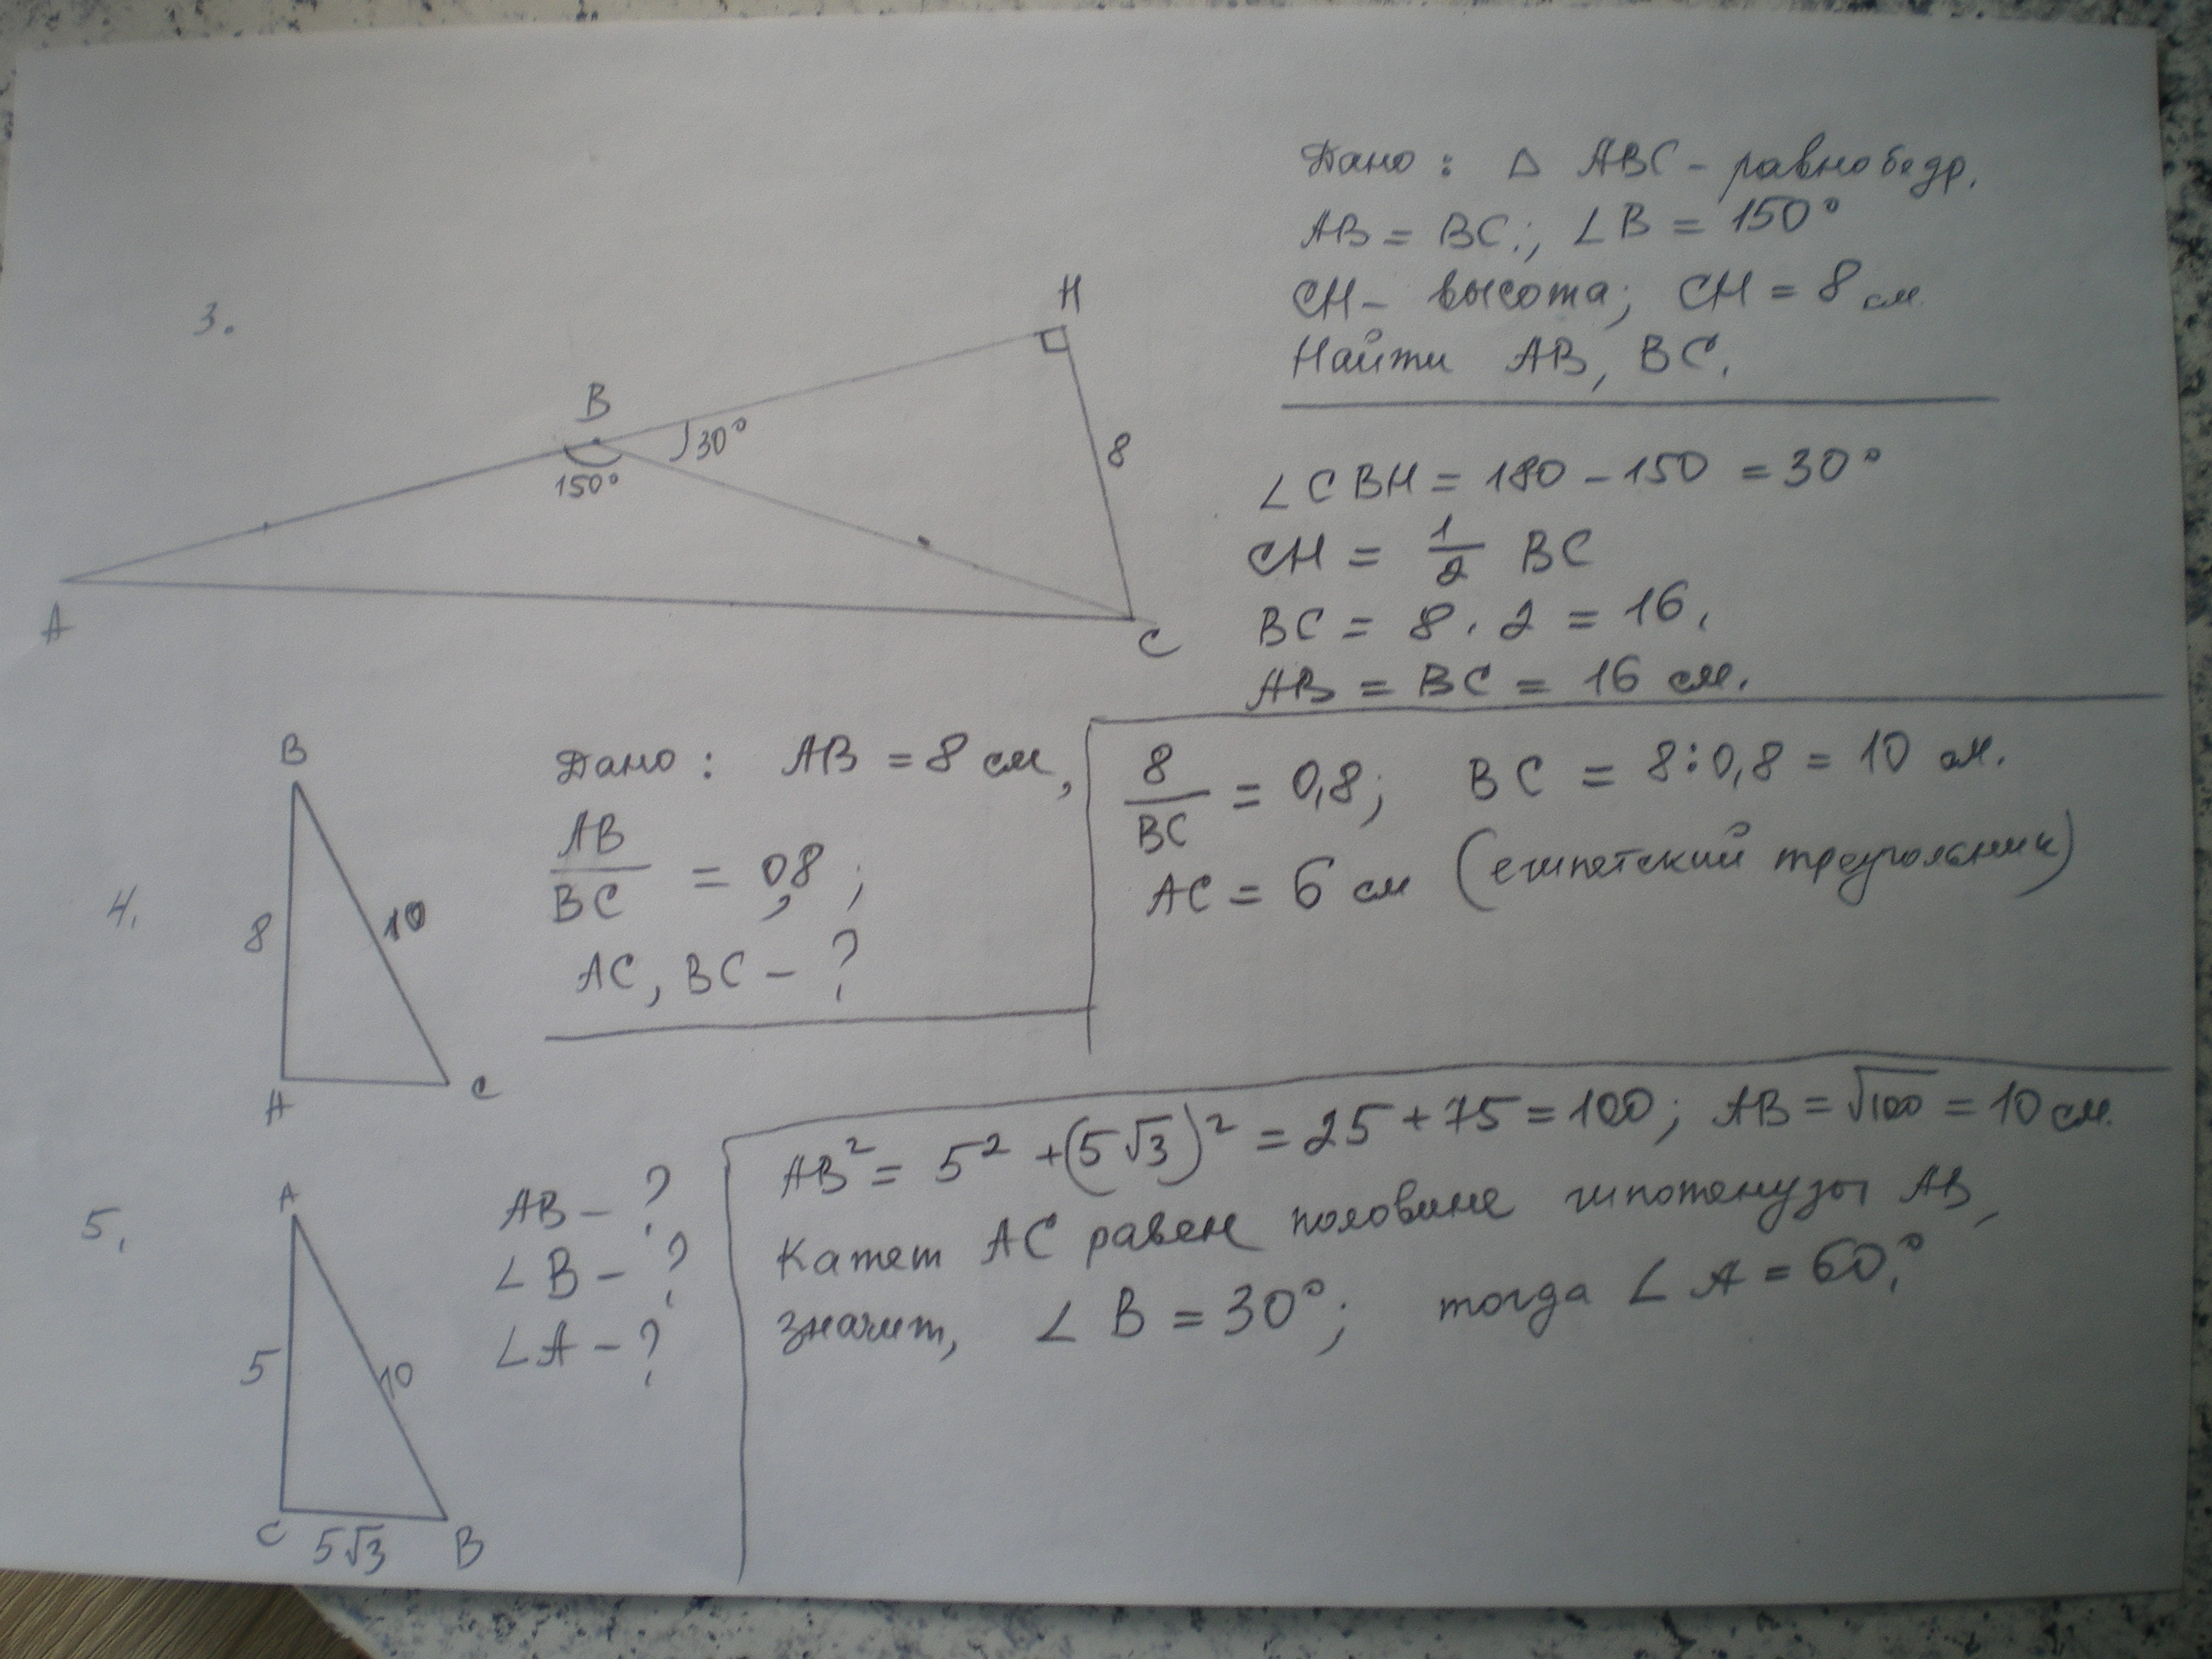 3.
A
B
H
C
150°
30°
8
Дано: △ ABC - равнобедр.
AB = BC; ∠B = 150°
CH - высота; CH = 8 см
Найти AB, BC.
∠CBH = 180 - 150 = 30°
CH = 1/2 BC
BC = 8 · 2 = 16.
AB = BC = 16 см.
4.
B
8
10
A
C
Дано: AB = 8 см,
AB/BC = 0,8;
AC, BC - ?
8/BC = 0,8; BC = 8:0,8 = 10 см.
AC = 6 см (египетский треугольник)
5.
A
5
10
C
5√3
B
AB - ?
∠B - ?
∠A - ?
AB² = 5² + (5√3)² = 25 + 75 = 100; AB = √100 = 10 см.
Катет AC равен половине гипотенузы AB,
значит, ∠B = 30°; тогда ∠A = 60°.